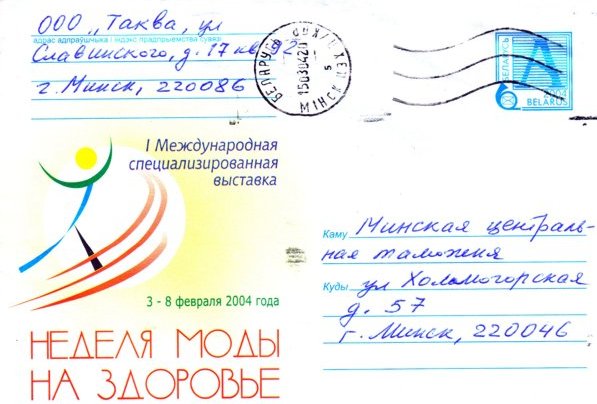 ООО „Таква, ул
адрас адпраўшчыка і індэкс прадпрыемства сувязі
Славинского, д. 17 кв 92
г. Минск, 220086
БЕЛАРУСЬ
150304 20
МІНСК
БЕЛАРУСЬ
А
2003
BELARUS
I Международная
специализированная
выставка
3 - 8 февраля 2004 года
НЕДЕЛЯ МОДЫ
НА ЗДОРОВЬЕ
Каму Минская централь-
ная таможня
Куды ул Холмогорская
д. 57
г. Минск, 220046